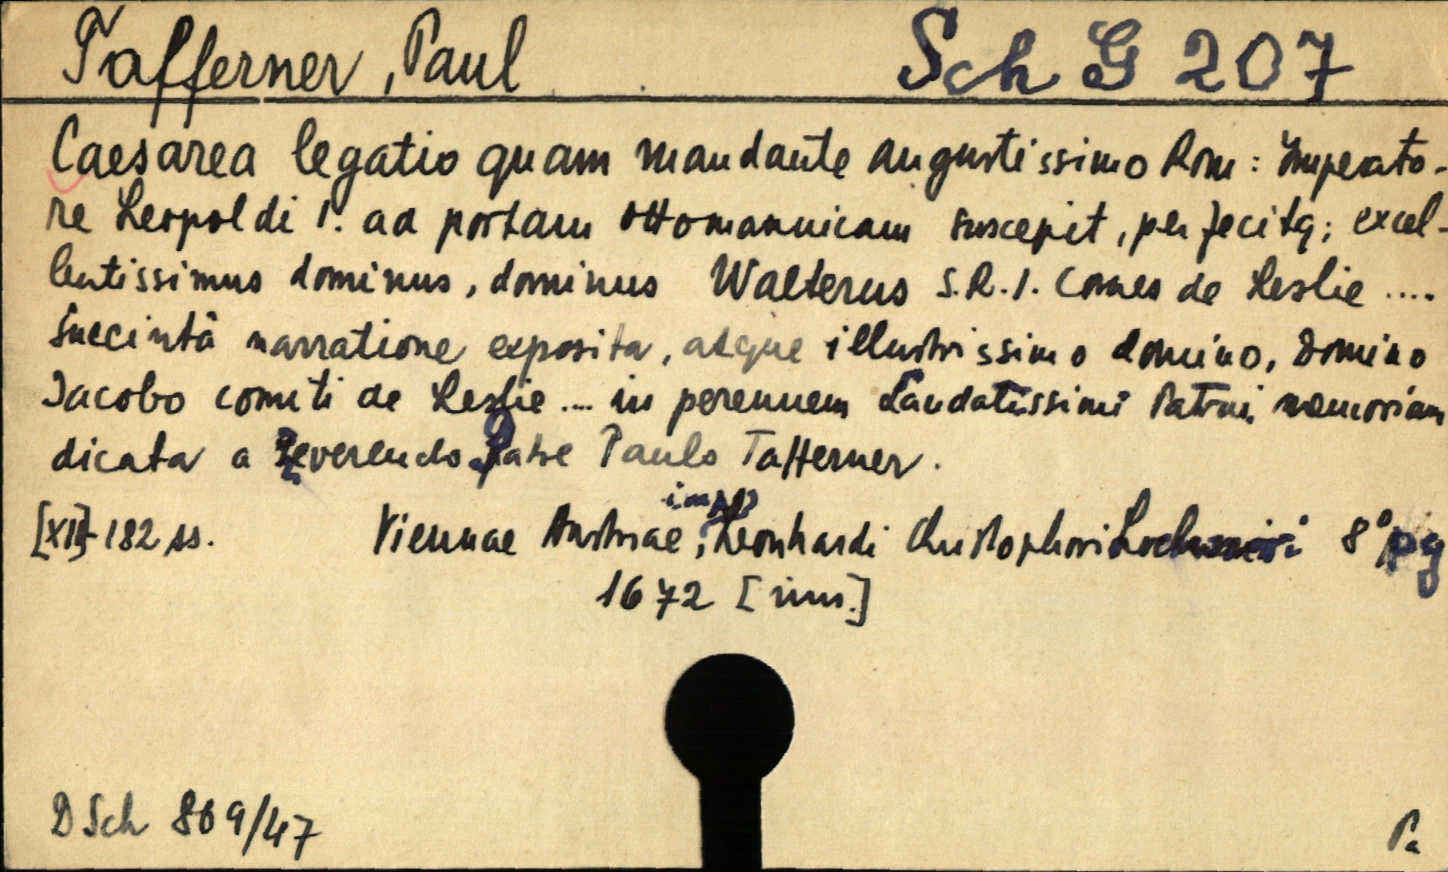 Tafferner, Paul Sch G 207
Caesarea legatio quam mandante augustissimo Rom: Imperato-
re Leopoldi I. ad portam ottomannicam suscepit, perfecitq; excel-
lentissimus dominus, dominus Walterus S.R.I. Comes de Leslie ....
Succintâ narratione exposita, atque illustrissimo domino, Domino
Jacobo comiti de Leslie .... in perennem Laudatissimi Patrui memoriam
dicata a Reverendo Patre Paulo Tafferner.
[XII]-182 ss. Viennae Austriae, imp Leonhardi Christophori 8° pg
1672 [inv.]
D Sch 869/47 Pa